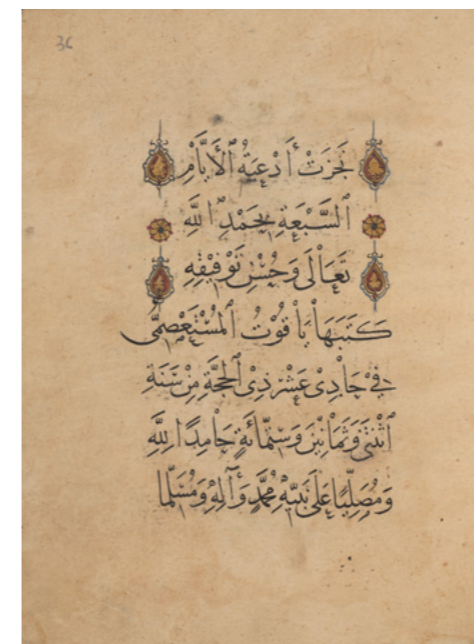 36
نَجَزَتْ أَدْعِيَةُ ٱلْأَيَّامِ
ٱلسَّبْعَةِ بِحَمْدِ ٱللَّهِ
تَعَالَى وَحُسْنِ تَوْفِيقِهِ
كَتَبَهَا يَاقُوتُ ٱلْمُسْتَعْصِمِيُّ
فِي حَادِي عَشَرَ ذِي ٱلْحِجَّةِ مِنْ سَنَةِ
ٱثْنَتَيْ وَثَمَانِينَ وَسِتِّمِائَةٍ حَامِدًا لِلَّهِ
وَمُصَلِّيًا عَلَى نَبِيِّهِ مُحَمَّدٍ وَآلِهِ وَمُسَلِّمًا